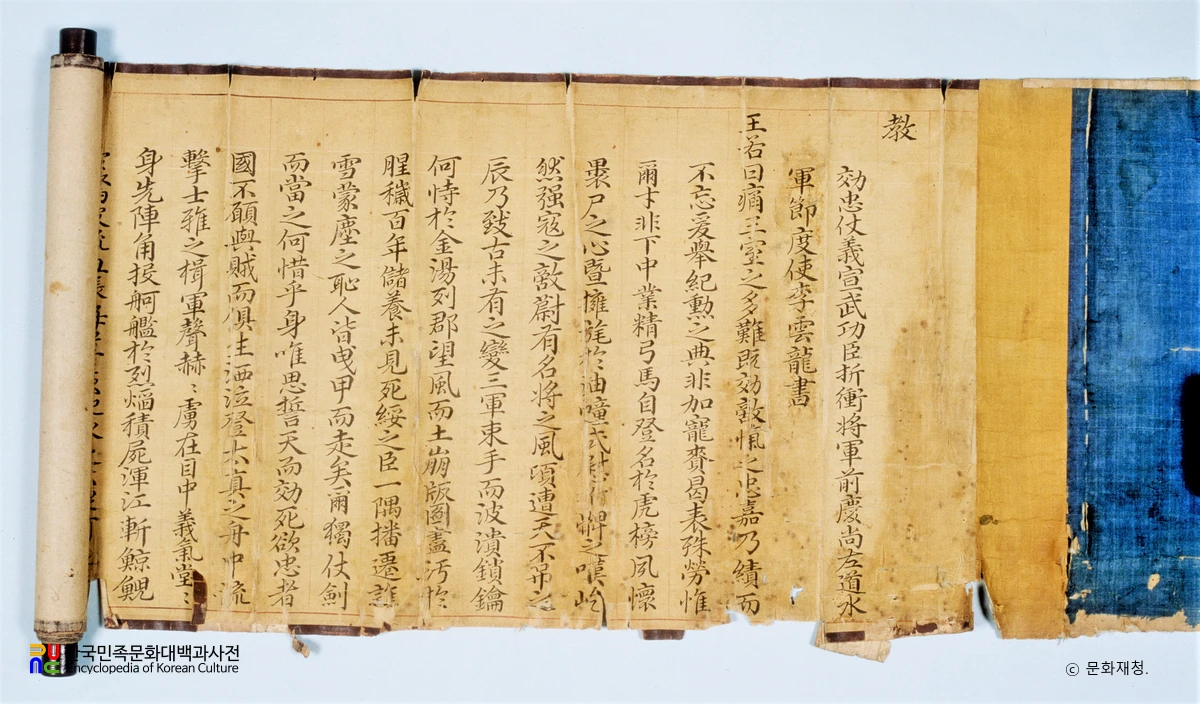 教
効忠仗義宣武功臣折衝将軍前慶尚左道水
軍節度使李雲龍書
王若曰痛王室之多難既効敵愾之忠嘉乃績而
不忘爰舉紀勲之典非加寵賚曷表殊勞惟
爾才非下中業精弓馬自登名於虎榜夙懷
褁尸之心曁擁旄於油幢式 之嘆屹
然强宼之敵蔚有名将之風頃遭天不吊之
辰乃致古未有之變三軍束手而波潰鎖鑰
何恃於金湯列郡望風而土崩版圖盡汚於
腥穢百年儲養未見死綏之臣一隅播遷誰
雪蒙塵之恥人皆曳甲而走矣爾獨仗劍
而當之何惜乎身唯思誓天而効死欲忠者
國不願與賊而俱生洒泣登 真之舟中流
擊士雅之楫軍聲赫〻虜在目中義氣堂〻
身先陣角投舸艦於烈焔積屍渾江斬鯨鯢
한국민족문화대백과사전
Encyclopedia of Korean Culture
ⓒ 문화재청.